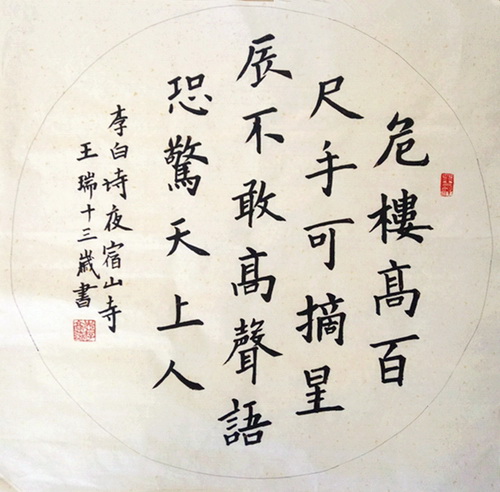 危樓髙百
尺手可摘星
辰不敢髙聲語
恐驚天上人
李白诗夜宿山寺
王瑞十三歲書